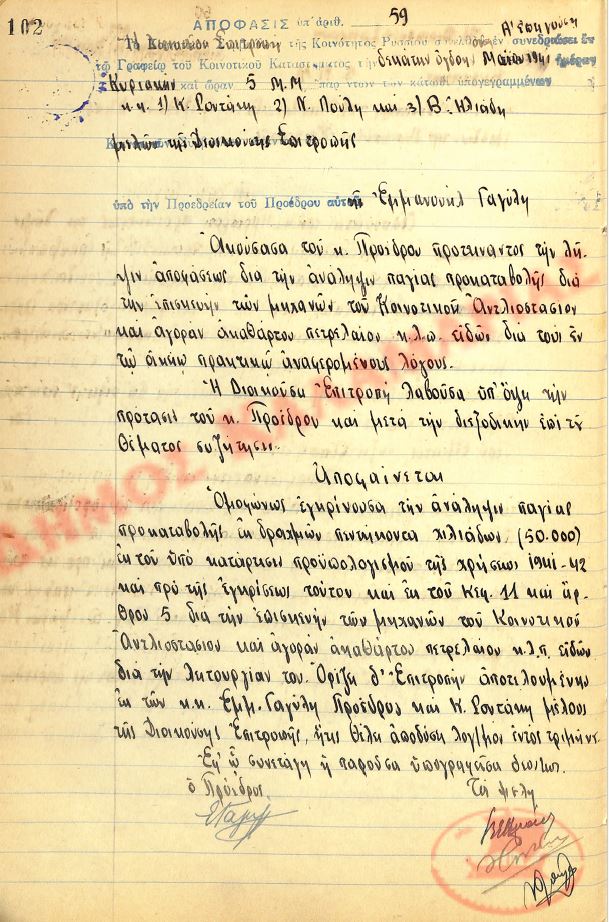 102
ΑΠΟΦΑΣΙΣ ὑπ' ἀριθ. 59
Α' Συνεδρίασις
Το Κοινοτικόν Συμβούλιον τῆς Κοινότητος Ρυσίου συνελθὸν ἐν συνεδριάσει ἐν
τῷ Γραφείῳ τοῦ Κοινοτικοῦ Καταστήματος τὴν δεκάτην ὀγδόην Μαΐου 1941 ἡμέραν
Κυριακὴν καὶ ὥραν 5 Μ.Μ παρόντων τῶν κάτωθι ὑπογεγραμμένων
κ.κ. 1) Κ. Ροντάκη 2) Ν. Πουλῆ καὶ 3) Β. Ηλιάδη
μελῶν τῆς Διοικούσης Ἐπιτροπῆς
ὑπὸ τὴν Προεδρείαν τοῦ Προέδρου αὐτῆς Ἐμμανουὴλ Γαγύλη
Ἀκούσασα τοῦ κ. Προέδρου προτείναντος τὴν λῆ-
ψιν ἀποφάσεως δια τὴν ἀνάληψιν παγίας προκαταβολῆς διὰ
τὴν ἐπισκευὴν τῶν μηχανῶν τοῦ Κοινοτικοῦ Ἀντλιοστασίου
καὶ ἀγορὰν ἀκαθάρτου πετρελαίου κ.λ.π. εἰδῶν διὰ τοὺς ἐν
τῷ πρακτικῷ ἀναφερομένους λόγους.
Ἡ Διοικοῦσα Ἐπιτροπὴ λαβοῦσα ὑπ' ὄψει τὴν
πρότασιν τοῦ κ. Προέδρου καὶ μετὰ τὴν διεξοδικὴν ἐπὶ τοῦ
θέματος συζήτησιν
Ἀποφαίνεται
Ὁμοφώνως ἐγκρίνουσα τὴν ἀνάληψιν παγίας
προκαταβολῆς ἐκ δραχμῶν πεντήκοντα χιλιάδων (50.000)
ἐκ τοῦ ὑπὸ κατάρτισιν προϋπολογισμοῦ τῆς χρήσεως 1941-42
καὶ πρὸ τῆς ἐγκρίσεως τούτου καὶ ἐκ τοῦ Κεφ. 11 καὶ ἄρ-
θρου 5 διὰ τὴν ἐπισκευὴν τῶν μηχανῶν τοῦ Κοινοτικοῦ
Ἀντλιοστασίου καὶ ἀγορὰν ἀκαθάρτου πετρελαίου κ.λ.π. εἰδῶν
διὰ τὴν λειτουργίαν του. Ὁρίζει δ' Ἐπιτροπὴν ἀποτελουμένην
ἐκ τῶν κ.κ. Ἐμμ. Γαγύλη Προέδρου καὶ Κ. Ροντάκη μέλους
τῆς Διοικούσης Ἐπιτροπῆς, ἥτις θέλει ἀποδώσῃ λογ/σμον ἐντὸς τριμήνου.
Ἐφ' ᾧ συνετάγη ἡ παροῦσα ὑπογραφεῖσα
ὁ Πρόεδρος Τὰ μέλη
ΔΗΜΟΣ ΚΑΛΑΜΑΡΙΑΣ